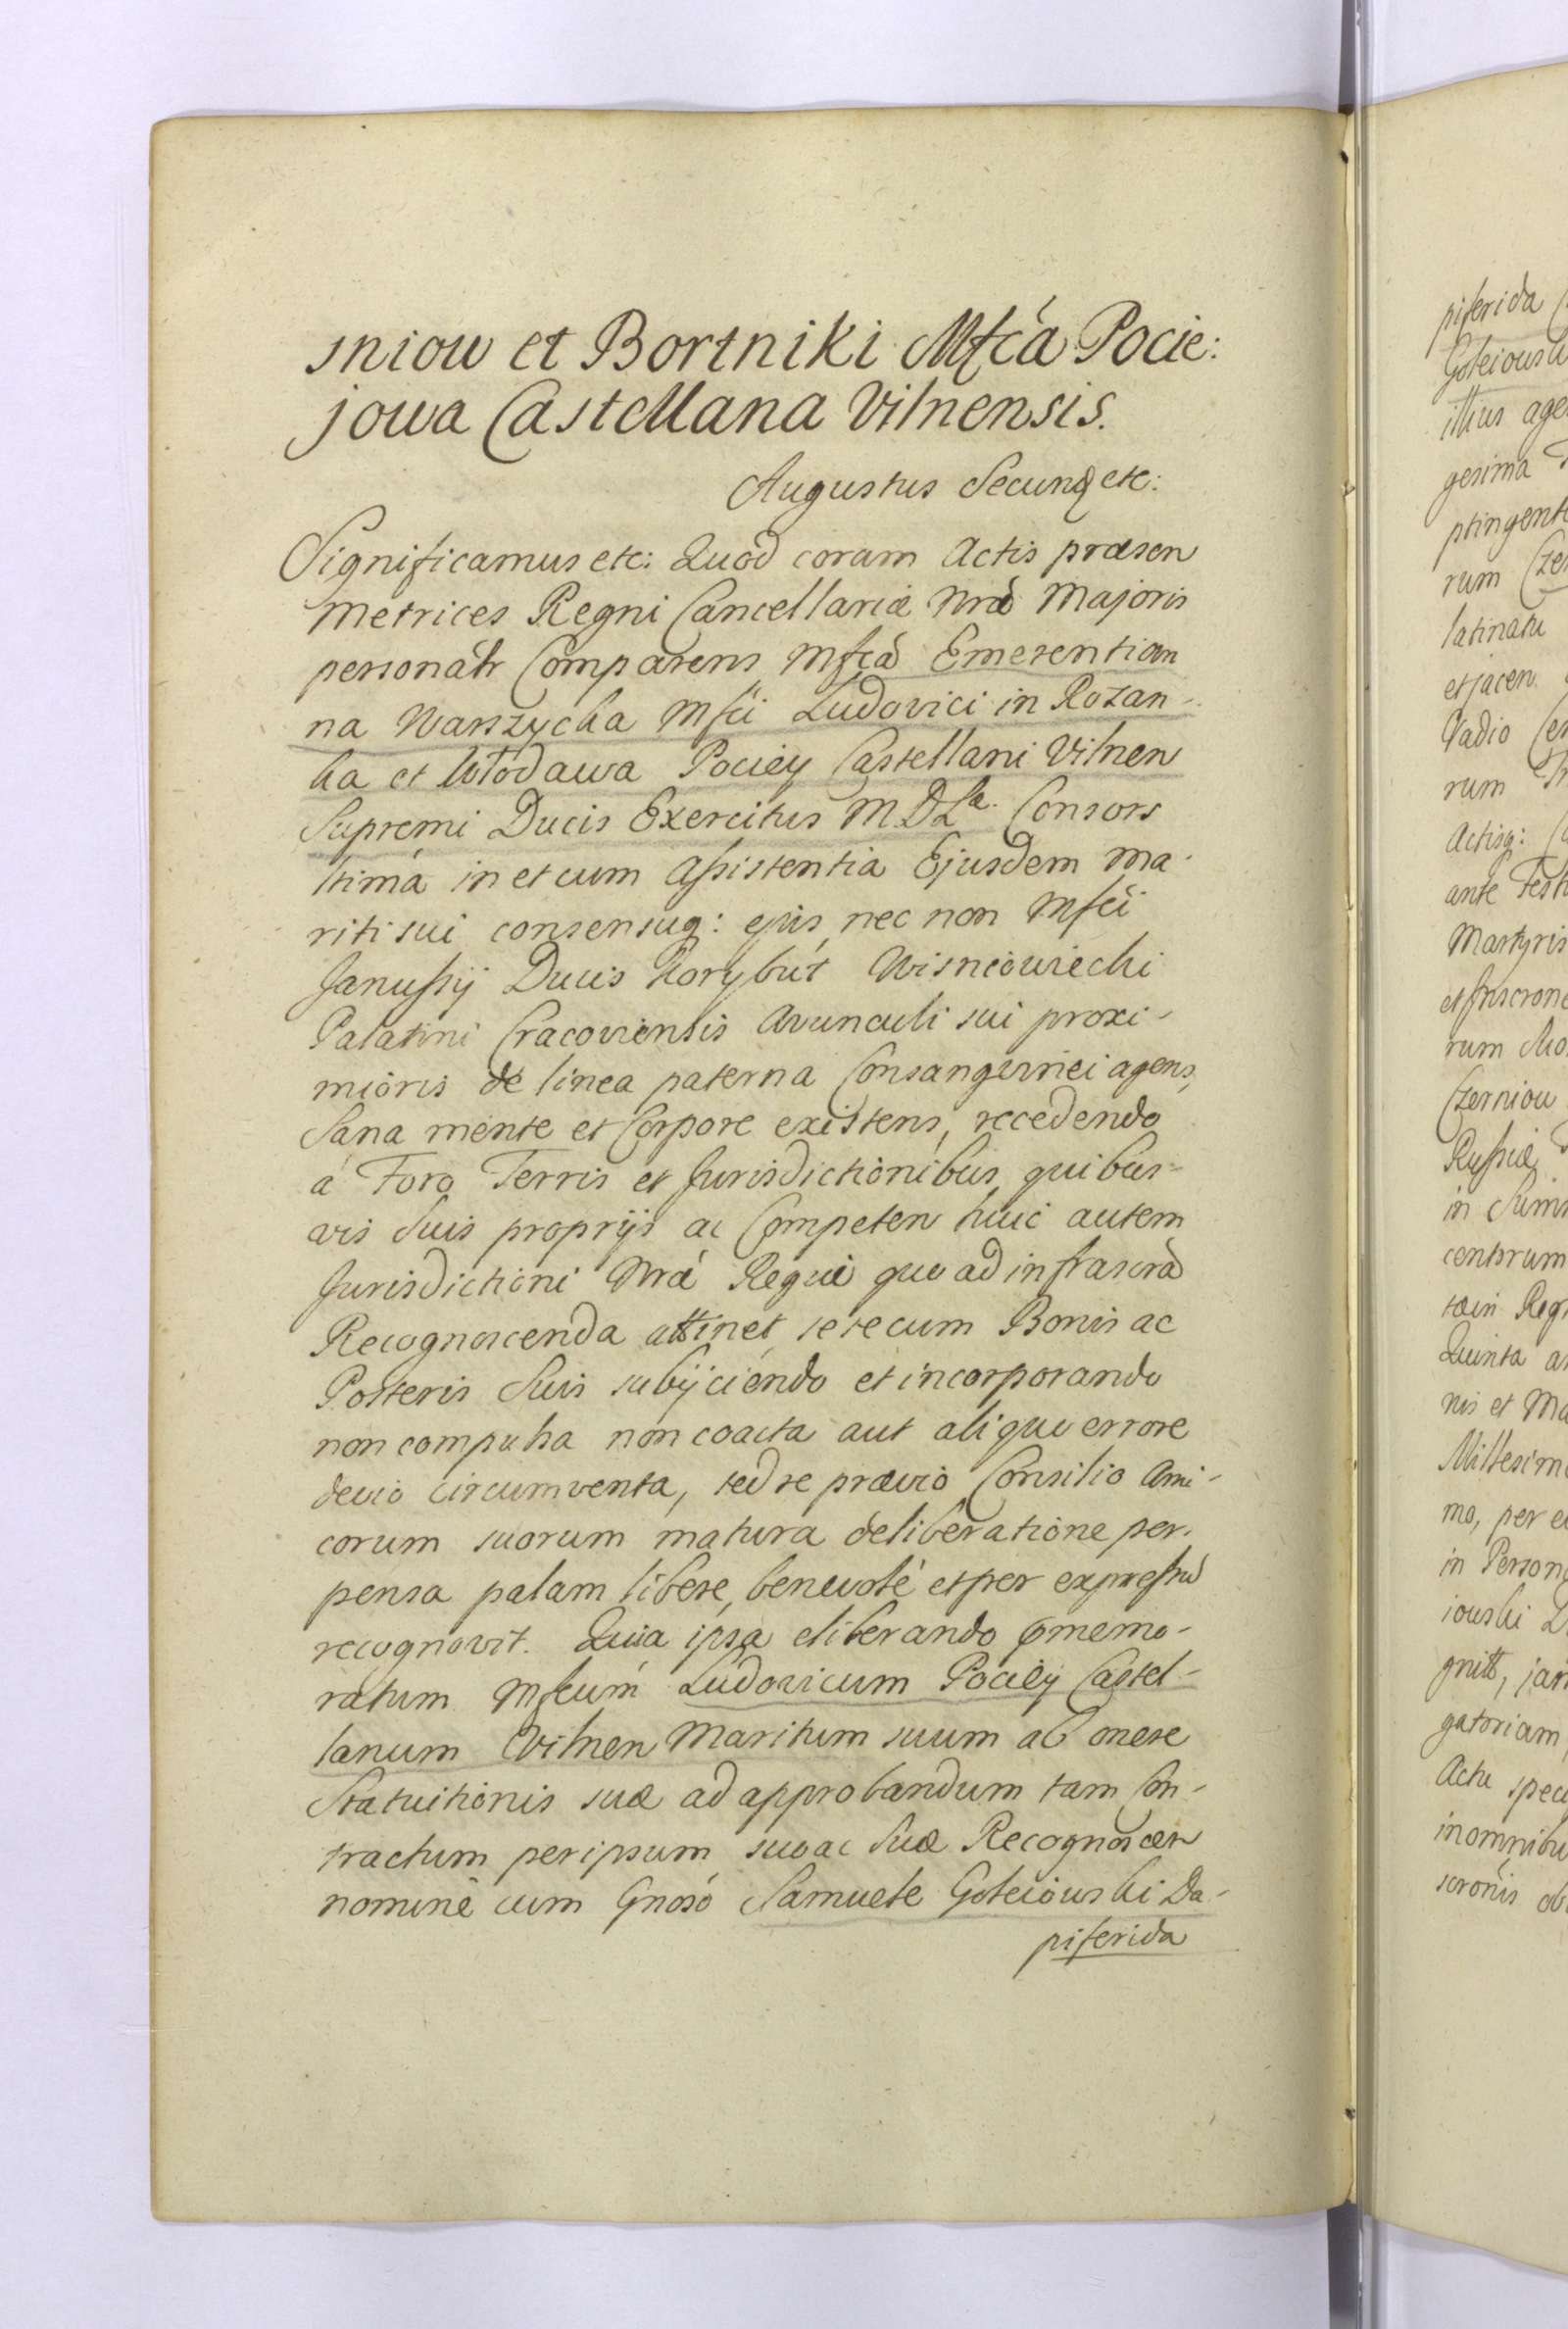 sniow et Bortniki Mfca Pocie:
jowa Castellana Vilnensis.
Augustus Secund9 etc:
Significamus etc: Quod coram Actis præsen
Metrices Regni Cancellariæ Nræ Majoris
personalr Comparens Mfca Emerentian
na Warszycka Mfci Ludovici in Rozan-
ka et Włodawa Pociey Castellani Vilnen
Supremi Ducis Exercitus M.D.L. Consors
ltima in et cum Assistentia Ejusdem Ma-
riti sui consensuq: ejus, nec non Mfci
Janussij Ducis Korybut Wisniowiecki
Palatini Cracoviensis Avunculi sui proxi-
mioris de linea paterna Consanguinei agens,
Sana mente et Corpore existens, recedendo
á Foro Terris et Jurisdictionibus quibus-
vis Suis proprijs ac Competen huic autem
Jurisdictioni Nræ Regiæ quo ad infrascra
Recognoscenda attinet, se se cum Bonis ac
Posteris Suis subijciendo et incorporando
non compulsa non coacta aut aliquo errore
devio circumventa, sed se prævio Consilio Ami-
corum suorum matura deliberatione per-
pensa palam libere, benevolé et per expressu
recognovit. Quia ipsa eliberando comemo-
ratum Mfcum Ludovicum Pociey Castel-
lanum Vilnen Maritum suum ab onere
Statuitionis suæ ad approbandum tam Con-
tractum per ipsum suo ac Suæ Recognoscen
nomine cum Gnoso Samuele Goleiowski Da-
piferida
piferida
Goleiowsk
illius age
gesima
ptingent
rum
latinatu
et jacen
Vadio
rum
Actisq:
ante Fest
Martyris
rum
Czerniow
Russiæ
in Sum
centorum
Quinta
nis et Ma
Millesim
mo, per
in Person
iowski
gatoriam
Actu spec
in omnibu